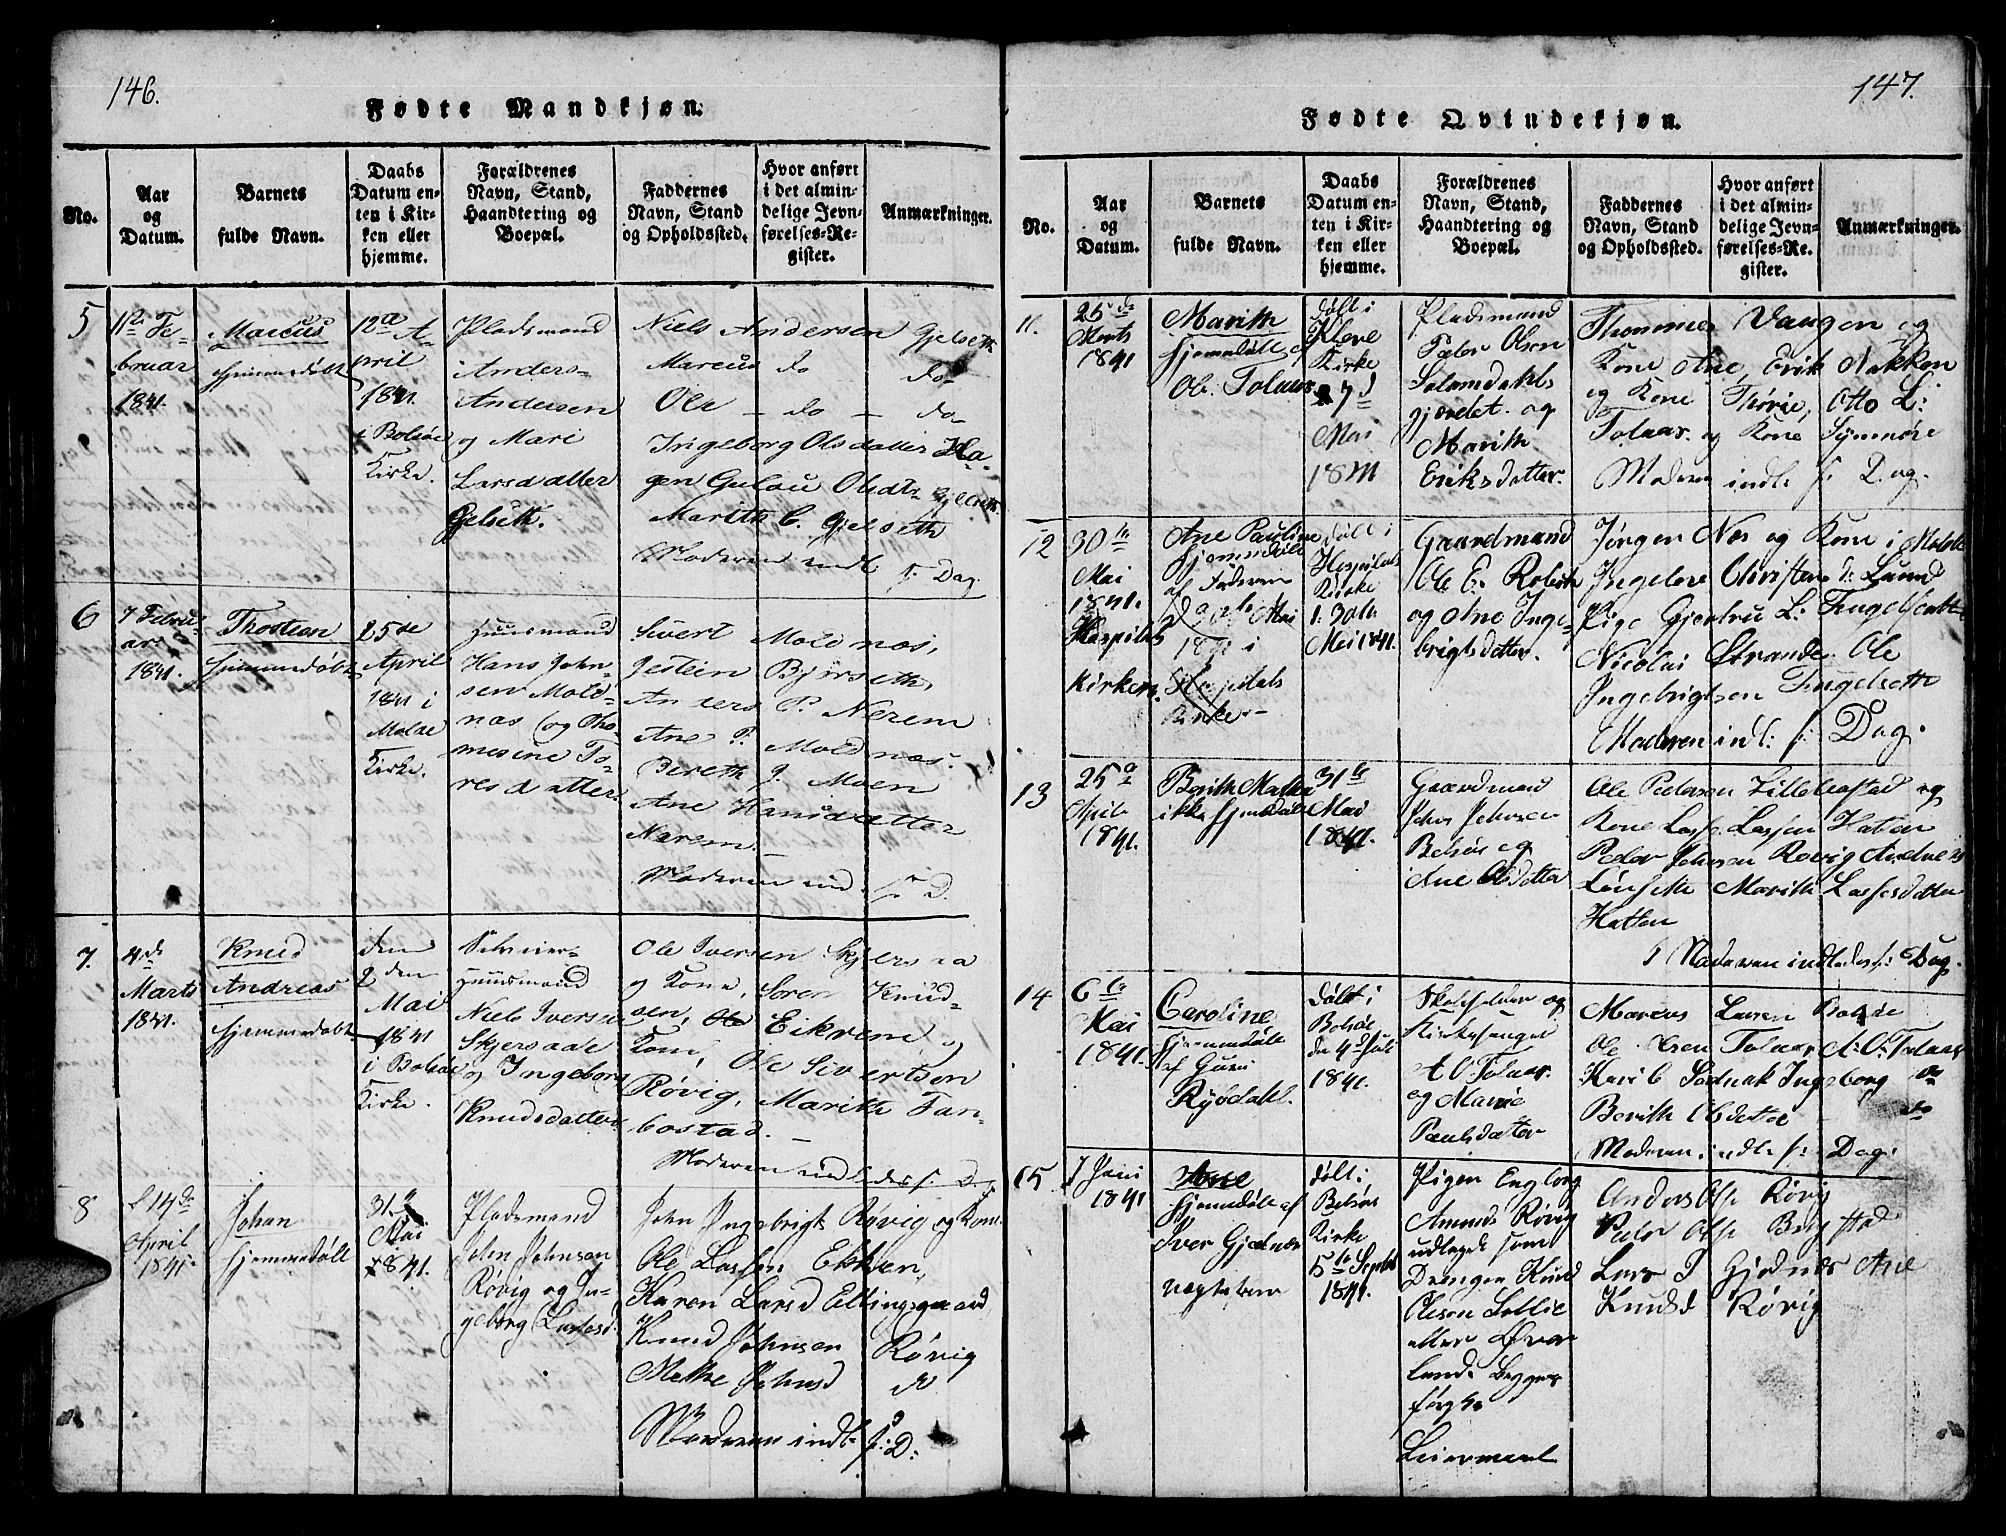 146.
Fødte Mandkjøn.
No.
Aar
og
Datum.
Barnets
fulde Navn.
Daabs
Datum en-
ten i Kir-
ken eller
hjemme.
Forældrenes
Navn, Stand,
Haandtering og
Boepæl.
Faddernes
Navn, Stand
og Opholdssted.
Hvor anført
i det almin-
delige Jevn-
førelses-Re-
gister.
Anmærkninger.
5
11te Fe-
bruar
1841.
Marcus
hjemmedøbt
12te A-
pril
1841.
i Bolsøe
Kirke.
Pladsmand
Anders
Andersen
og Mari
Larsdatter
Gjelseth.
Niels Andersen Gjelseth
Marcus do do-
Ole - do - do-
Ingeborg Olsdatter Ha-
gen Gulau Olsdtr Gjelseth
Marith C. Gjelseth
Moderen indl. s. Dag.
6
7 Febru-
ar
1841.
Thostian
hjemmedøbt
25de
April
1841 i
Molde
Kirke.
Huusmand
Hans John-
sen Mold-
nas (og Tho-
mesine To-
resdatter.
Sivert Moldnas,
Jestein Bjørseth,
Anders P. Nerem
Ane P. Moldnas.
Bereth J. Moen
Ane Hansdatter
Narem.
Moderen ind. s. D.
7.
4de
Marts
1841.
Knud
Andreas
hjemmedøbt
den
9 den
Mai
1841
i Bolsøe
Kirke.
Huusmand
Niels Iversen
Skjersaae
og Ingeborg
Knudsdatter
Ole Iversen Skjersaa
og Kone, Soren Knud-
sen, Eikrem og
Kone, Ole Sivertsen
Røvig, Marith Tan-
bostad.
Moderen indledes s. D.
8
14de
April
1841.
Johan
hjemmedøbt
31te
Mai
1841.
Pladsmand
John Johnsen
Røvig og In-
geborg Larsd.
John Ingebrigt Røvig og Kone
Ole Lassen Ekhren,
Karen Larsd Ellingsgaard
Knud Johnsen Røvig
Methe Johnsd do
Moderen indl. s: D:
147.
Fødte Qvindekjøn.
No.
Aar
og
Datum.
Barnets
fulde Navn.
Daabs
Datum en-
ten i Kir-
ken eller
hjemme.
Forældrenes
Navn, Stand,
Haandtering og
Boepæl.
Faddernes
Navn, Stand
og Opholdssted.
Hvor anført
i det almin-
delige Jevn-
førelses-Re-
gister.
Anmærkninger.
11.
25de
Marts
1841
Marith
hjemdøbt af
Ole Tolaas
døbt i
Kleve
Kirke
7d
Mai
1841
Pladsmand
Peder Olsen
Solemdahls
gjærdet og
Marith
Eriksdatter.
Thommes Vangen og
Kone Ane, Erik Nakken
og Kone Thorie, Otto L:
Tolaas og Kone Symnøre
Moderen indl. s: Dag.
12
30te
Mai
1841.
Hospitals
Kirken.
Ane Pauline
hjemmdøbt
af Faderen
Døpt Mai
1841 i
Hospitals
Kirke
døbt i
Hospitals
Kirke
d. 30te
Mei 1841.
Gaardmand
Ole E. Robek
og Ane Inge-
brigtsdatter.
Jørgen Nes og Kone i Molde
Ingelore Christine d: Lund
Pige Gjertru L: Tugelseth
Nicolai Strande. Ole
Ingebrigtsen Tugelseth
Moderen indl: s: Dag.
13
25de
April
1841.
Berith Malha
ikke hjemdøbt
31te
Mai
1841.
Gaardmand
John Johnsen
Bolsøe og
Ane Olsdatter
Ole Pedersen Lillebostad og
Kone Lasse Lassen Hatlen
Peder Johnsen Rovig Andreas
Lønseth Marith Lassesdatter
Hatlen
Moderen indledes s: Dag.
14
6te
Mai
1841.
Caroline
hjemmdøbt
af Guri
Rypdahl.
døbt i
Bolsøe
den 4d Juli
1841.
Skoleholder og
Kirkesanger
A O Tolaas
og Marie
Paulsdatter
Marcus Larsen Bolsøe
Ole Olsen Tolaas A. O: Tolaas
Kari C Sødnak Ingeborg do
Berith Olsdatter do
Moderen indl. s: Dag:
15.
7 Juni
1841
Ane
hjemdøbt af
Iver Gjednæs
døbt i
Bolsøe
Kirke
5te Septb
1841.
Pigen Engborg
Amunds Røvig
udlagde som
Drengen Knud
Olsen Lollie
eller Øver
land. Begges
første
Leiermaal
Anders Ols Røvig
Peder Ols Bergstad
Lars J Gjednæs Ane
Knudsd Røvig